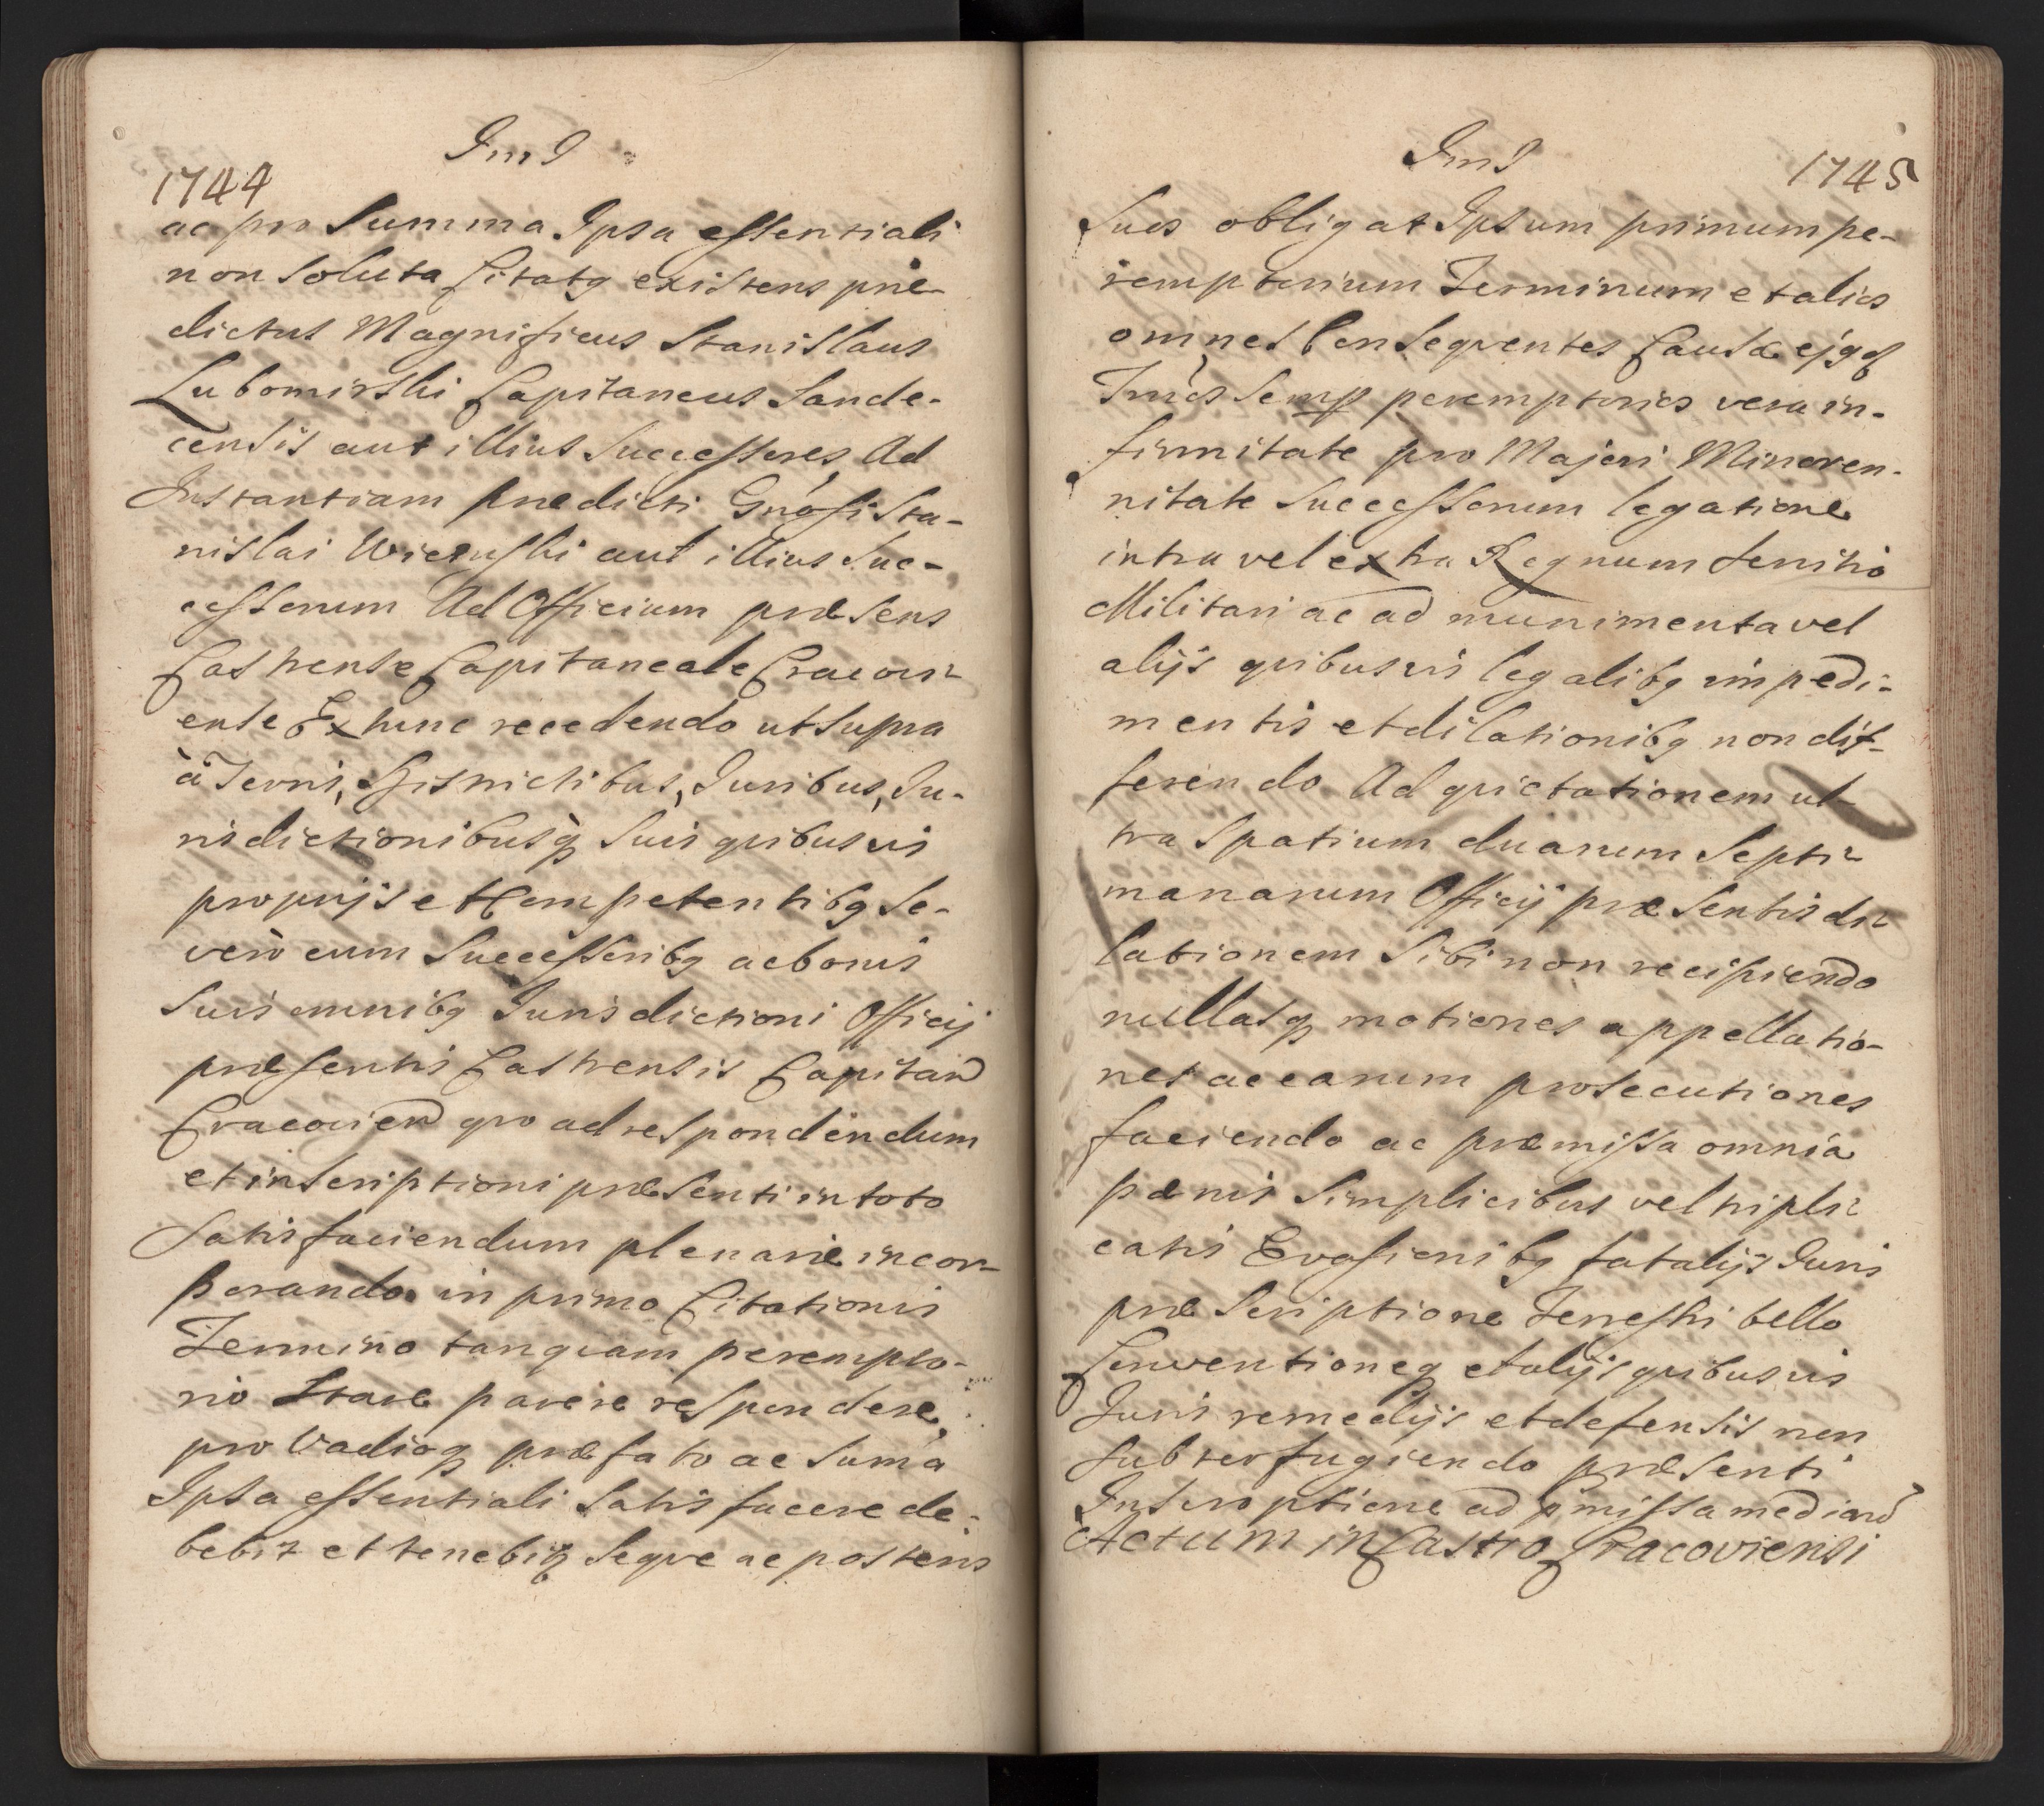 1744
ac pro Summa Ipsa essentiali
non Soluta Citatq existens præ-
dictus Magnificus Stanislaus
Lubomirski Capitaneus Sande-
censis aut illius Successores, Ad
Instantiam prædicti Gnosi Sta-
nislai Wieruski aut illius Suc-
cessorum Ad Officium præsens
Castrense Capitaneale Cracovi-
ense Exhinc recedendo ut supra
à Terris, Districtibus, Juribus, Ju-
risdictionibusq Suis quibusvis
proprijs et Competentibq Se-
verò cum Successoribq ac bonis
Suis omnibq Jurisdictioni Officij
præsentis Castrensis Capitan
Cracovien quo ad respondendum
et inscriptioni præsenti in toto
Satisfaciendum plenariè incor-
porando in primo Citationis
Termino tanquam perempto-
rio Stare parere respondere,
pro Vadioq præfato ac Suma
Ipsa essentiali Satisfacere de-
bebit et tenebitq Seque ac posteros
1745
Suos obligat Ipsum primum pe-
remptorium Terminum et alios
omnes Consequentes Causæ ejqq
Tmos Semp peremptorios vera in-
firmitate pro Majori Minoren-
nitate Successorum legatione
intra vel extra Regnum Servitio
Militari ac ad munimenta vel
alijs quibusvis legalibq impedi-
mentis et dilationibq non dif-
ferendo Ad quietationem ul-
tra Spatium duarum Septi-
manarum Officij præsentis di-
lationem Sibi non recipiendo
nullasq motiones appellatio-
nes ac earum prosecutiones
faciendo ac præmissa omnia
pænis Simplicibus vel tripli-
catis Evasionibq fatalijs Juris
præscriptione Terrestri bello
Conventioneq et alijs quibusvis
Juris remedijs et defensis non
Subterfugiendo præsenti
Inscriptione ad pmissa median
Actum in Castro Cracoviensi